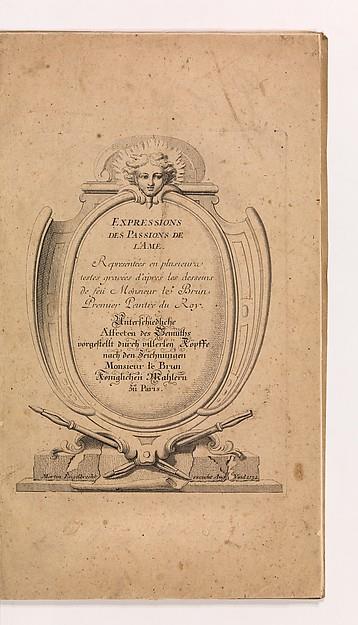 EXPRESSIONS
DES PASSIONS DE
L'AME.
Representées en plusieurs
testes gravées d'apres les desseins
de feu Monsieur le Brun
Premier Peintre du Roy.
Unterschiedliche
Affecten des Gemüths
vorgestellt durch villerley Köpffe
nach den Zeichnungen
Monsieur le Brun
Königlichen Mahlern
zu Paris.
Martin Engelbrecht
excudit Aug. Vind. 1732